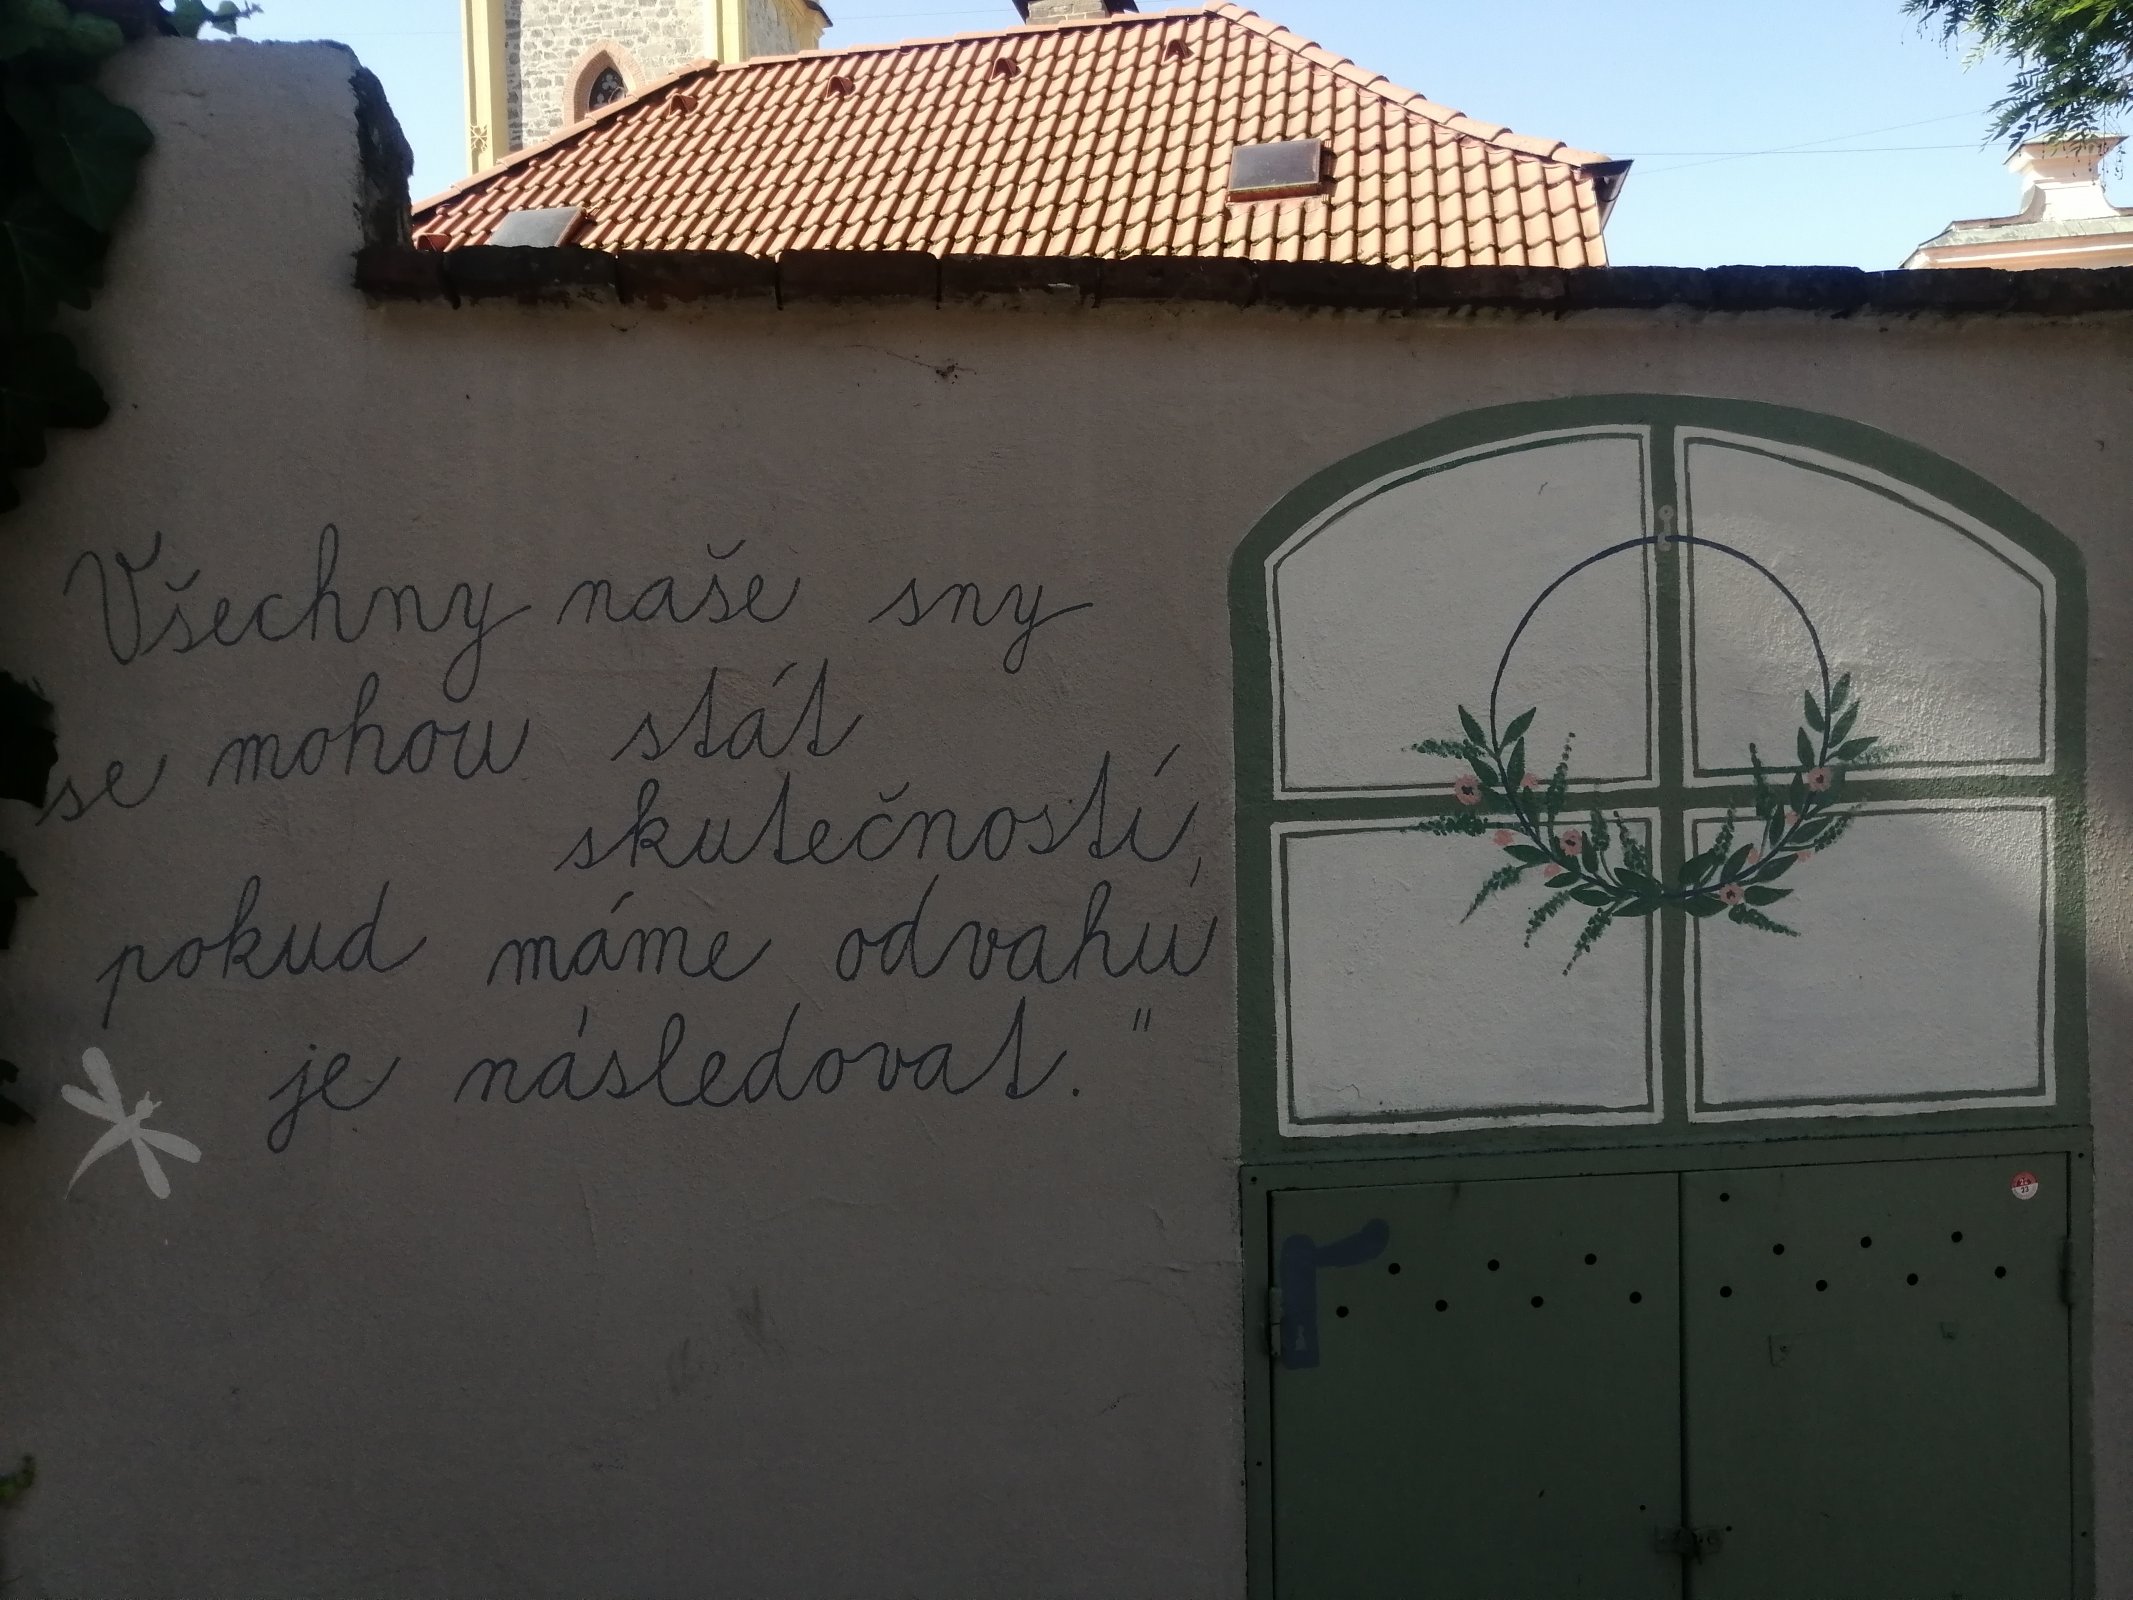 Všechny naše sny
se mohou stát
skutečností,
pokud máme odvahu
je následovat."